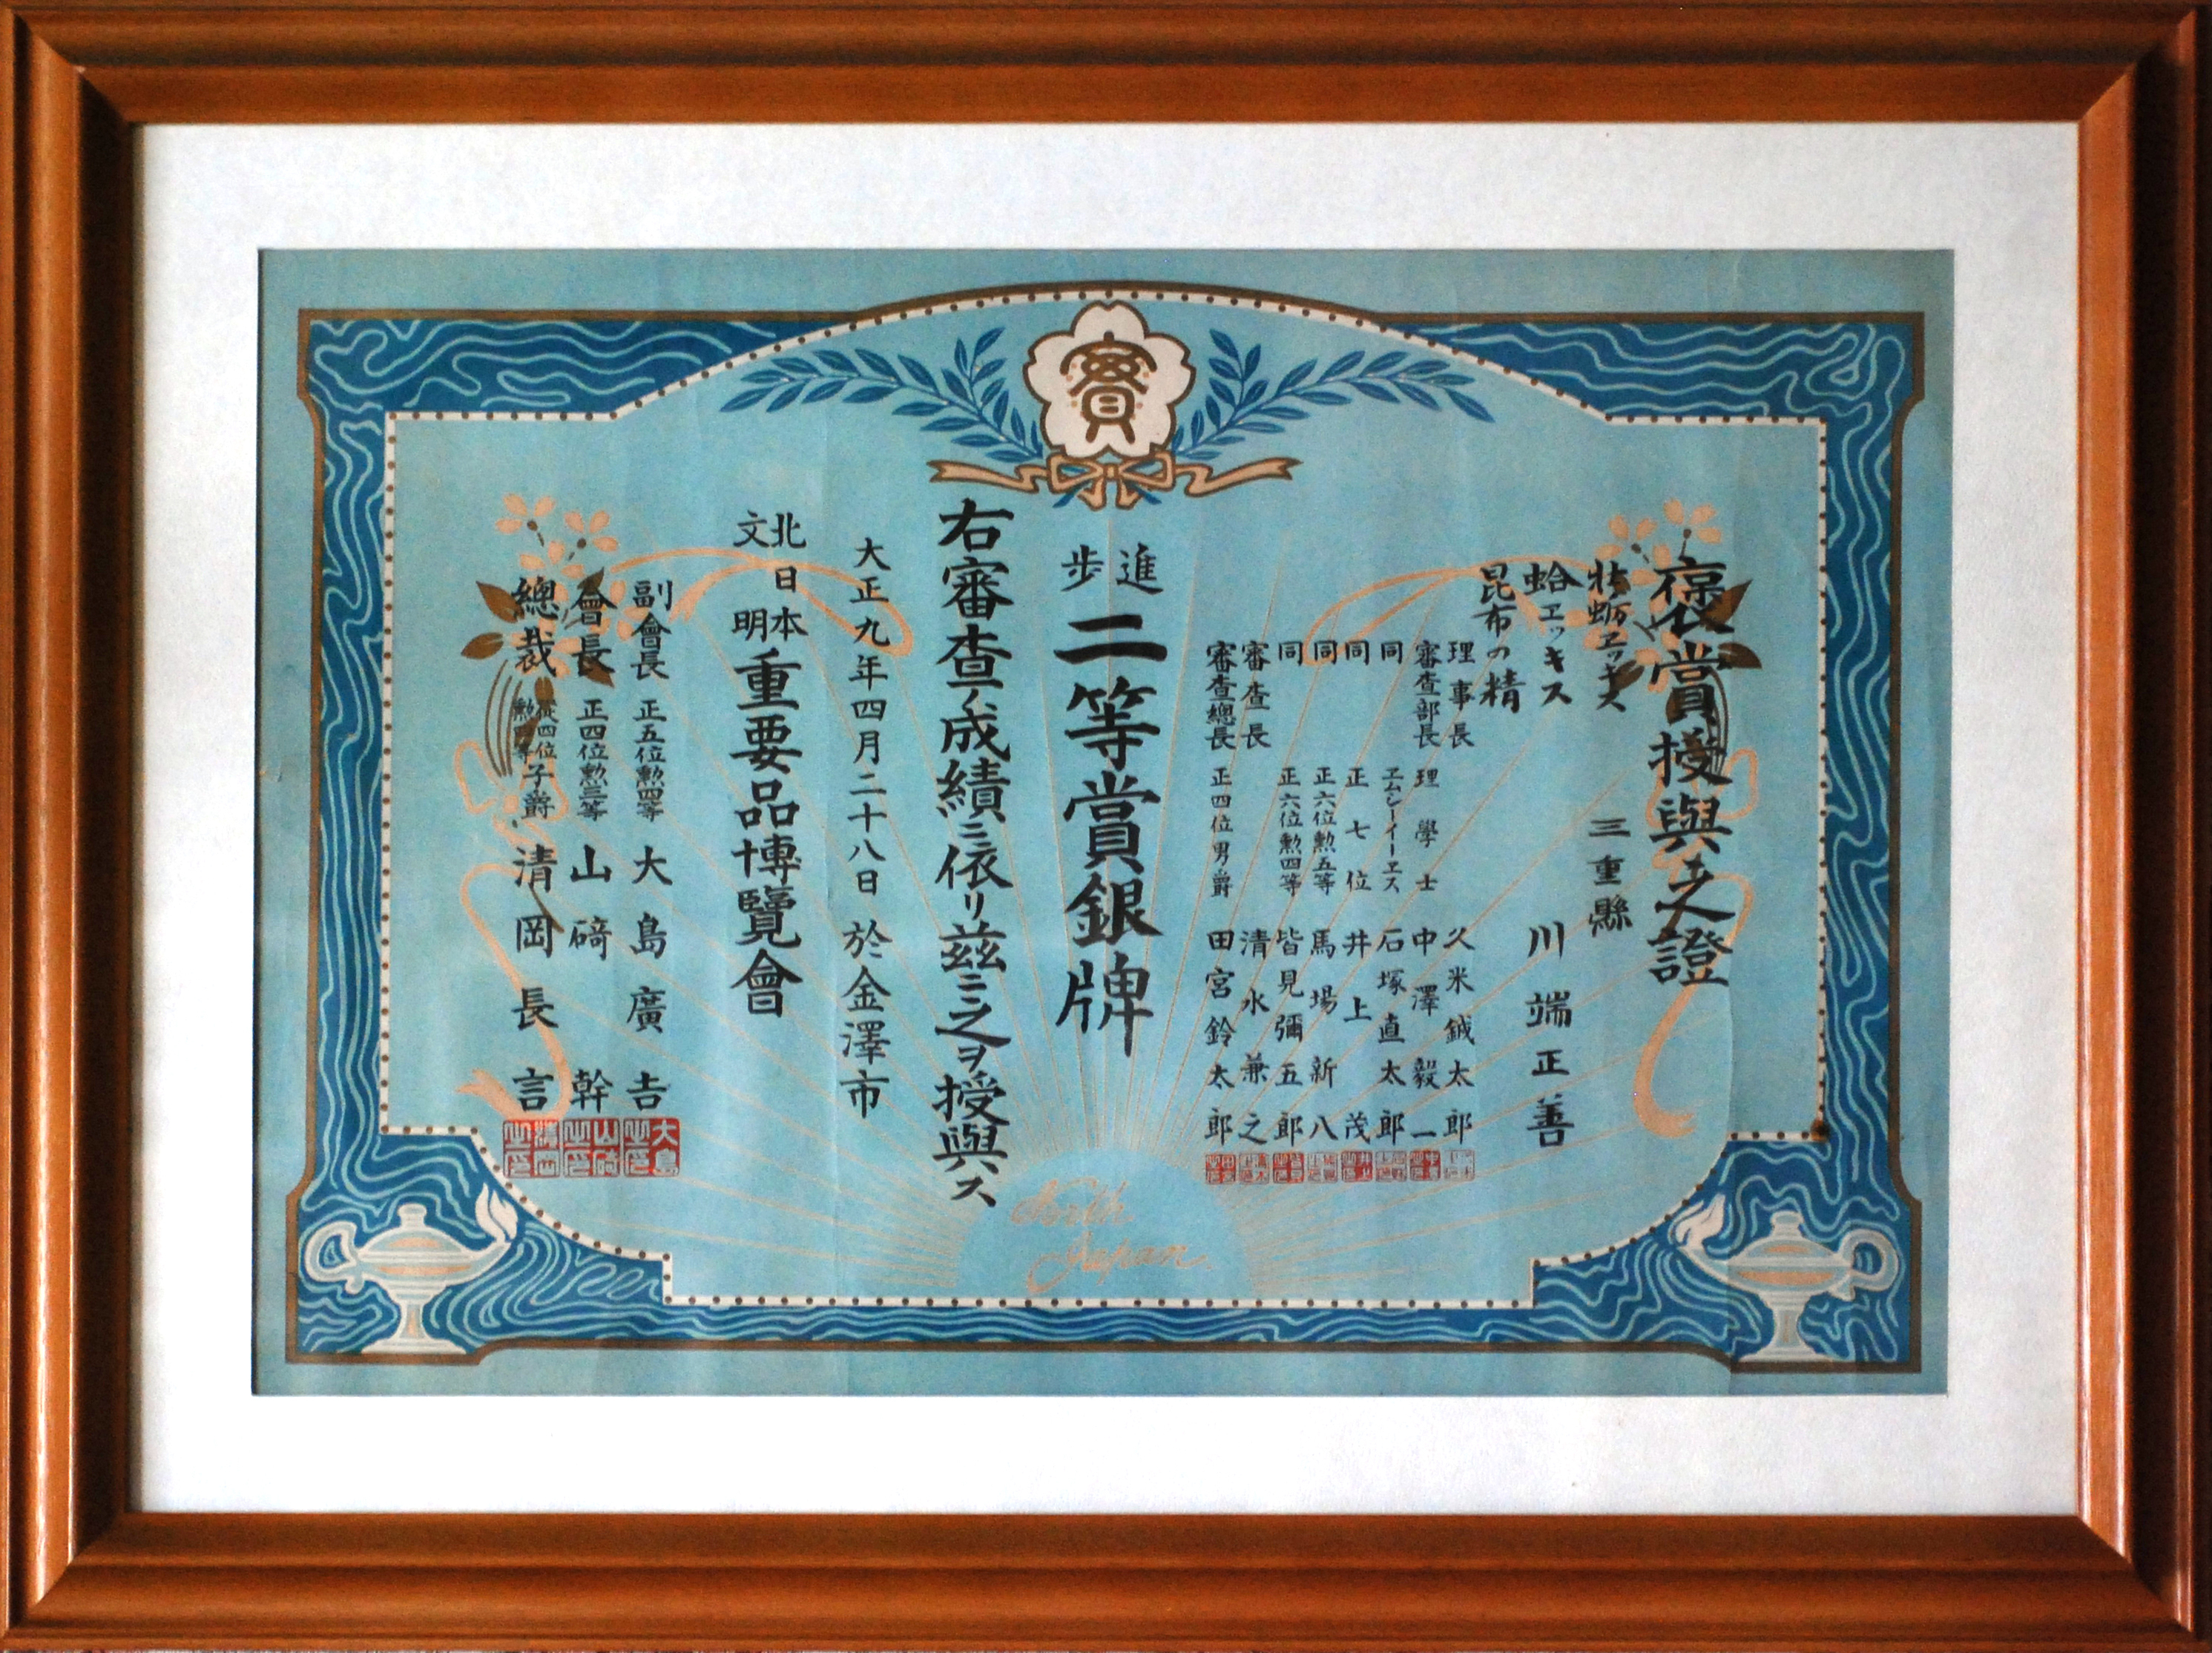 賞
褒賞授與之證
牡蛎エッキス
蛤エッキス
昆布の精
三重縣
川端正善
理事長 久米鉞太郎
審査部長 理學士 中澤毅一
同 エムシーイーエス 石塚直太郎
同 正七位 井上茂
同 正六位勲五等 馬場新八
同 正六位勲四等 皆見彌五郎
審査長 清水兼之
審査總長 正四位男爵 田宮鈴太郎
進歩
二等賞銀牌
右審査ノ成績ニ依リ茲ニ之ヲ授與ス
大正九年四月二十八日 於金澤市
北日本
文明
重要品博覽會
副會長 正五位勲四等 大島廣吉
會長 正四位勲三等 山碕幹
總裁 從四位勲四等子爵 清岡長言
North
Japan